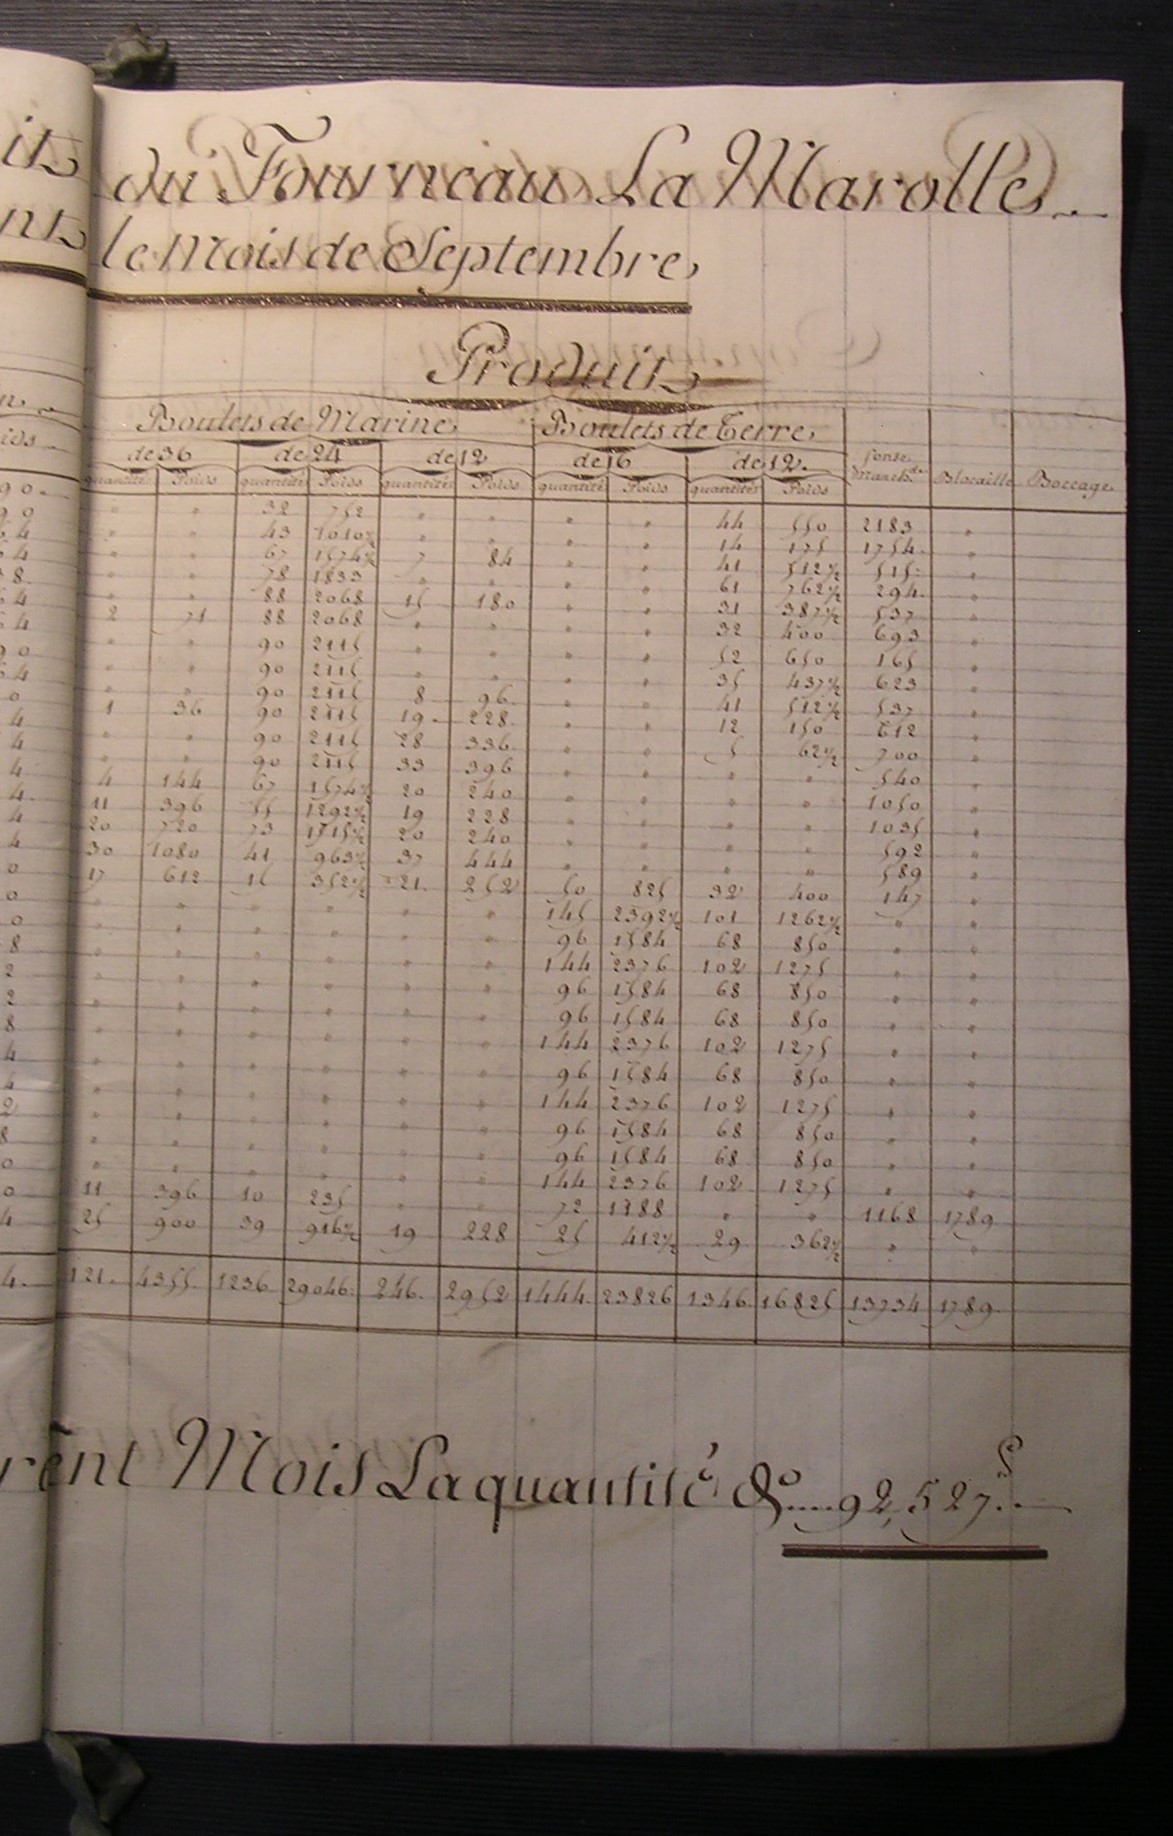 its du Fourneau La Marolle
nts le Mois de Septembre
Produits
Boulets de Marine Boulets de Terre
de 36 de 24 de 12 de 16 de 12 fonte March.de Blocaille Boccage
quantité Poids quantité Poids quantité Poids quantité Poids quantité Poids
" " 32 752 " " " " 44 550 2183 "
" " 43 1010½ " " " " 14 175 1754 "
" " 67 1574½ 7 84 " " 41 512½ 515 "
" " 78 1833 " " " " 61 762½ 294 "
" " 88 2068 15 180 " " 31 387½ 537 "
2 71 88 2068 " " " " 32 400 693 "
" " 90 2115 " " " " 52 650 165 "
" " 90 2115 " " " " 35 437½ 623 "
" " 90 2115 8 96 " " 41 512½ 537 "
1 36 90 2115 19 228 " " 12 150 612 "
" " 90 2115 28 336 " " 5 62½ 700 "
" " 90 2115 33 396 " " " " 540 "
4 144 67 1574½ 20 240 " " " " 1050 "
11 396 55 1292½ 19 228 " " " " 1035 "
20 720 73 1715½ 20 240 " " " " 592 "
30 1080 41 963½ 37 444 " " " " 589 "
17 612 15 352½ 21 252 50 825 32 400 147 "
" " " " " " 145 2392½ 101 1262½ " "
" " " " " " 96 1584 68 850 " "
" " " " " " 144 2376 102 1275 " "
" " " " " " 96 1584 68 850 " "
" " " " " " 96 1584 68 850 " "
" " " " " " 144 2376 102 1275 " "
" " " " " " 96 1584 68 850 " "
" " " " " " 144 2376 102 1275 " "
" " " " " " 96 1584 68 850 " "
" " " " " " 96 1584 68 850 " "
" " " " " " 144 2376 102 1275 " "
11 396 10 235 " " 72 1188 " " 1168 1789
25 900 39 916½ 19 228 25 412½ 29 362½ " "
121 4355 1236 29046 246 2952 1444 23826 1346 16825 13734 1789
rent Mois La quantité do..... 92,527 £